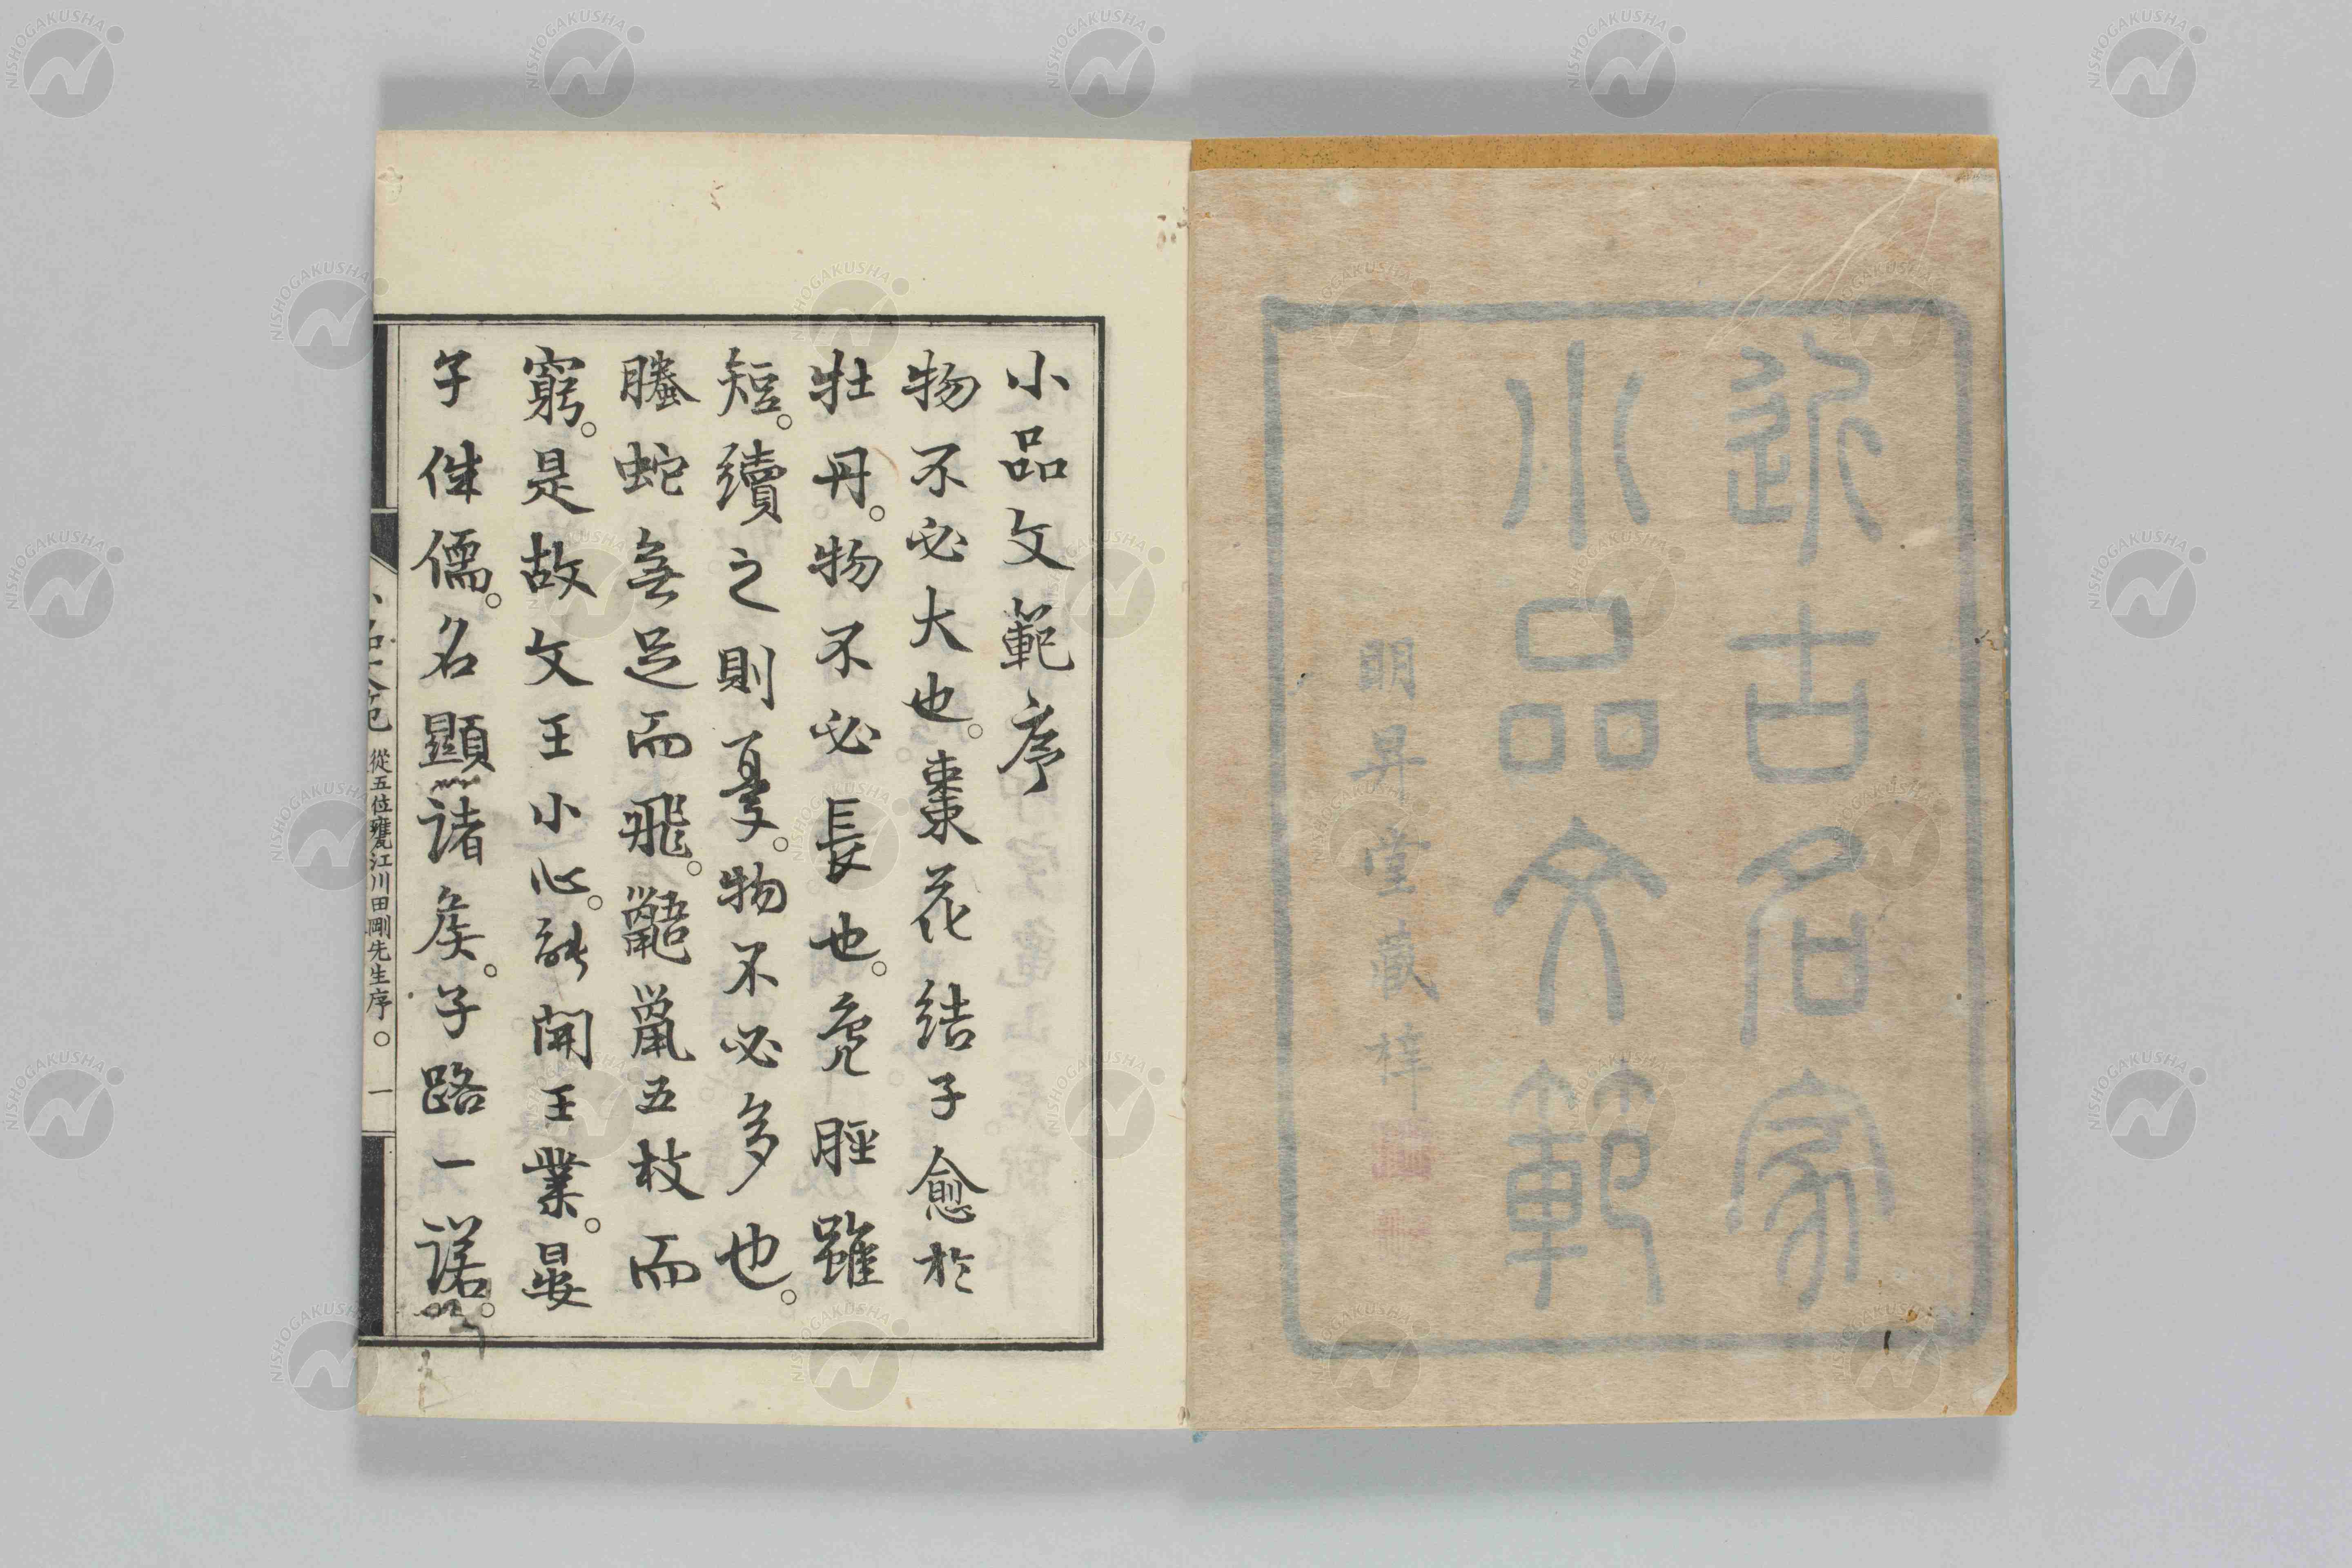 近古名家
小品文範
明昇堂藏梓
小品文範序
物不必大也。棗花結子愈於
牡丹。物不必長也。鳧脛雖
短。續之則憂。物不必多也。
螣蛇無足而飛。鼯鼠五枝而
窮。是故文王小心。能開王業。晏
子侏儒。名顯諸矦。子路一諾。
小品文範 從五位甕江川田剛先生序。 一
NISHOGAKUSHA